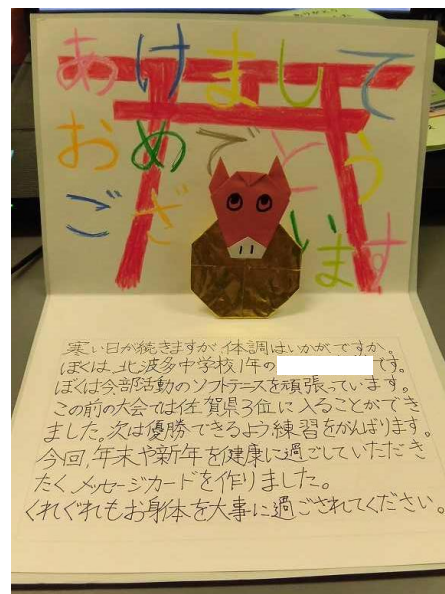 あけまして
おめでとう
ございます
寒い日が続きますが体調はいかがですか。
ぼくは、北波多中学校1年の です。
ぼくは今部活動のソフトテニスを頑張っています。
この前の大会では佐賀県3位に入ることができ
ました。次は優勝できるよう練習をがんばります。
今回、年末や新年を健康に過ごしていただき
たくメッセージカードを作りました。
くれぐれもお身体を大事に過ごされてください。